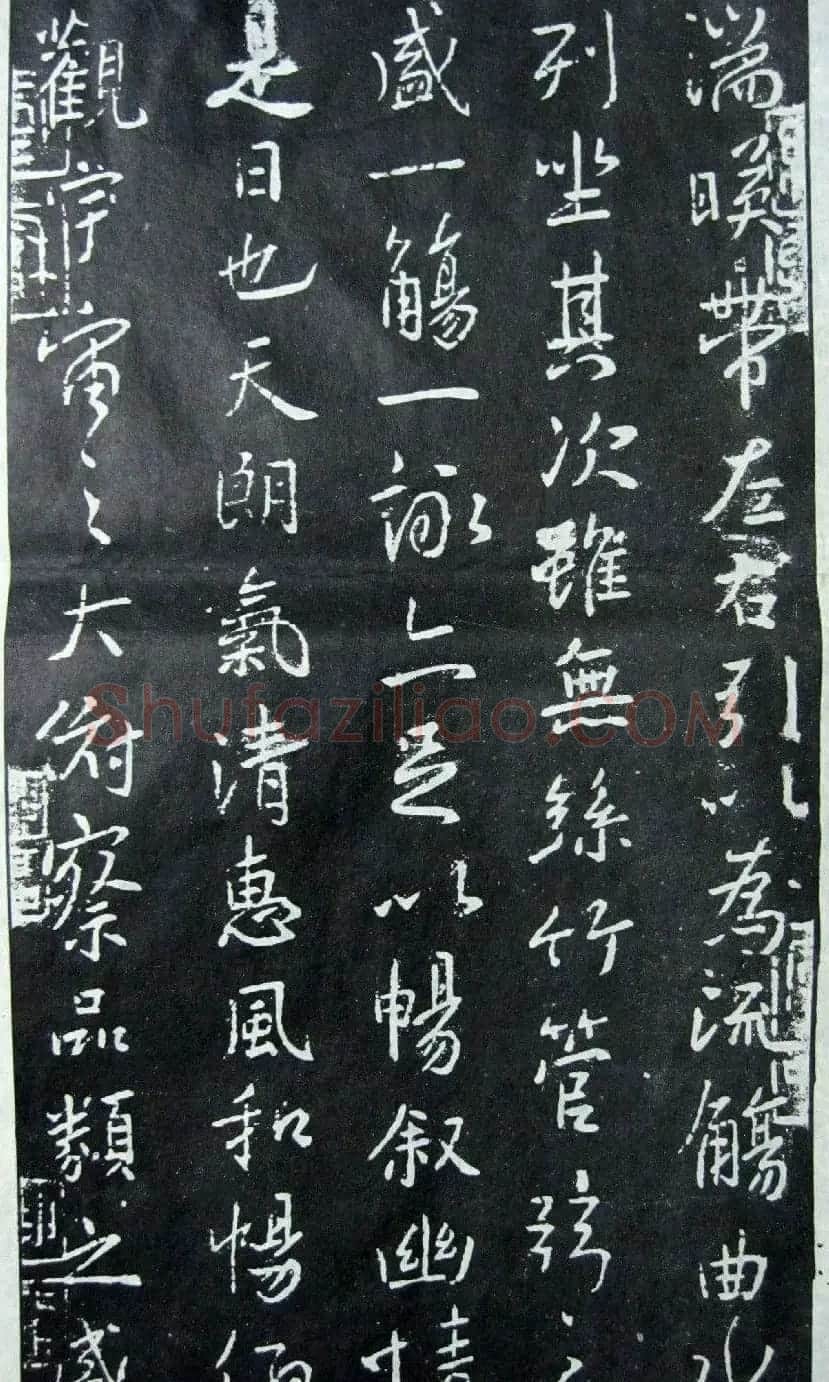 湍暎帶左右引以為流觴曲水
列坐其次雖無絲竹管弦之
盛一觴一詠亦足以暢叙幽情
是日也天朗氣清惠風和暢仰
觀宇宙之大俯察品類之盛
Shufaziliao.COM